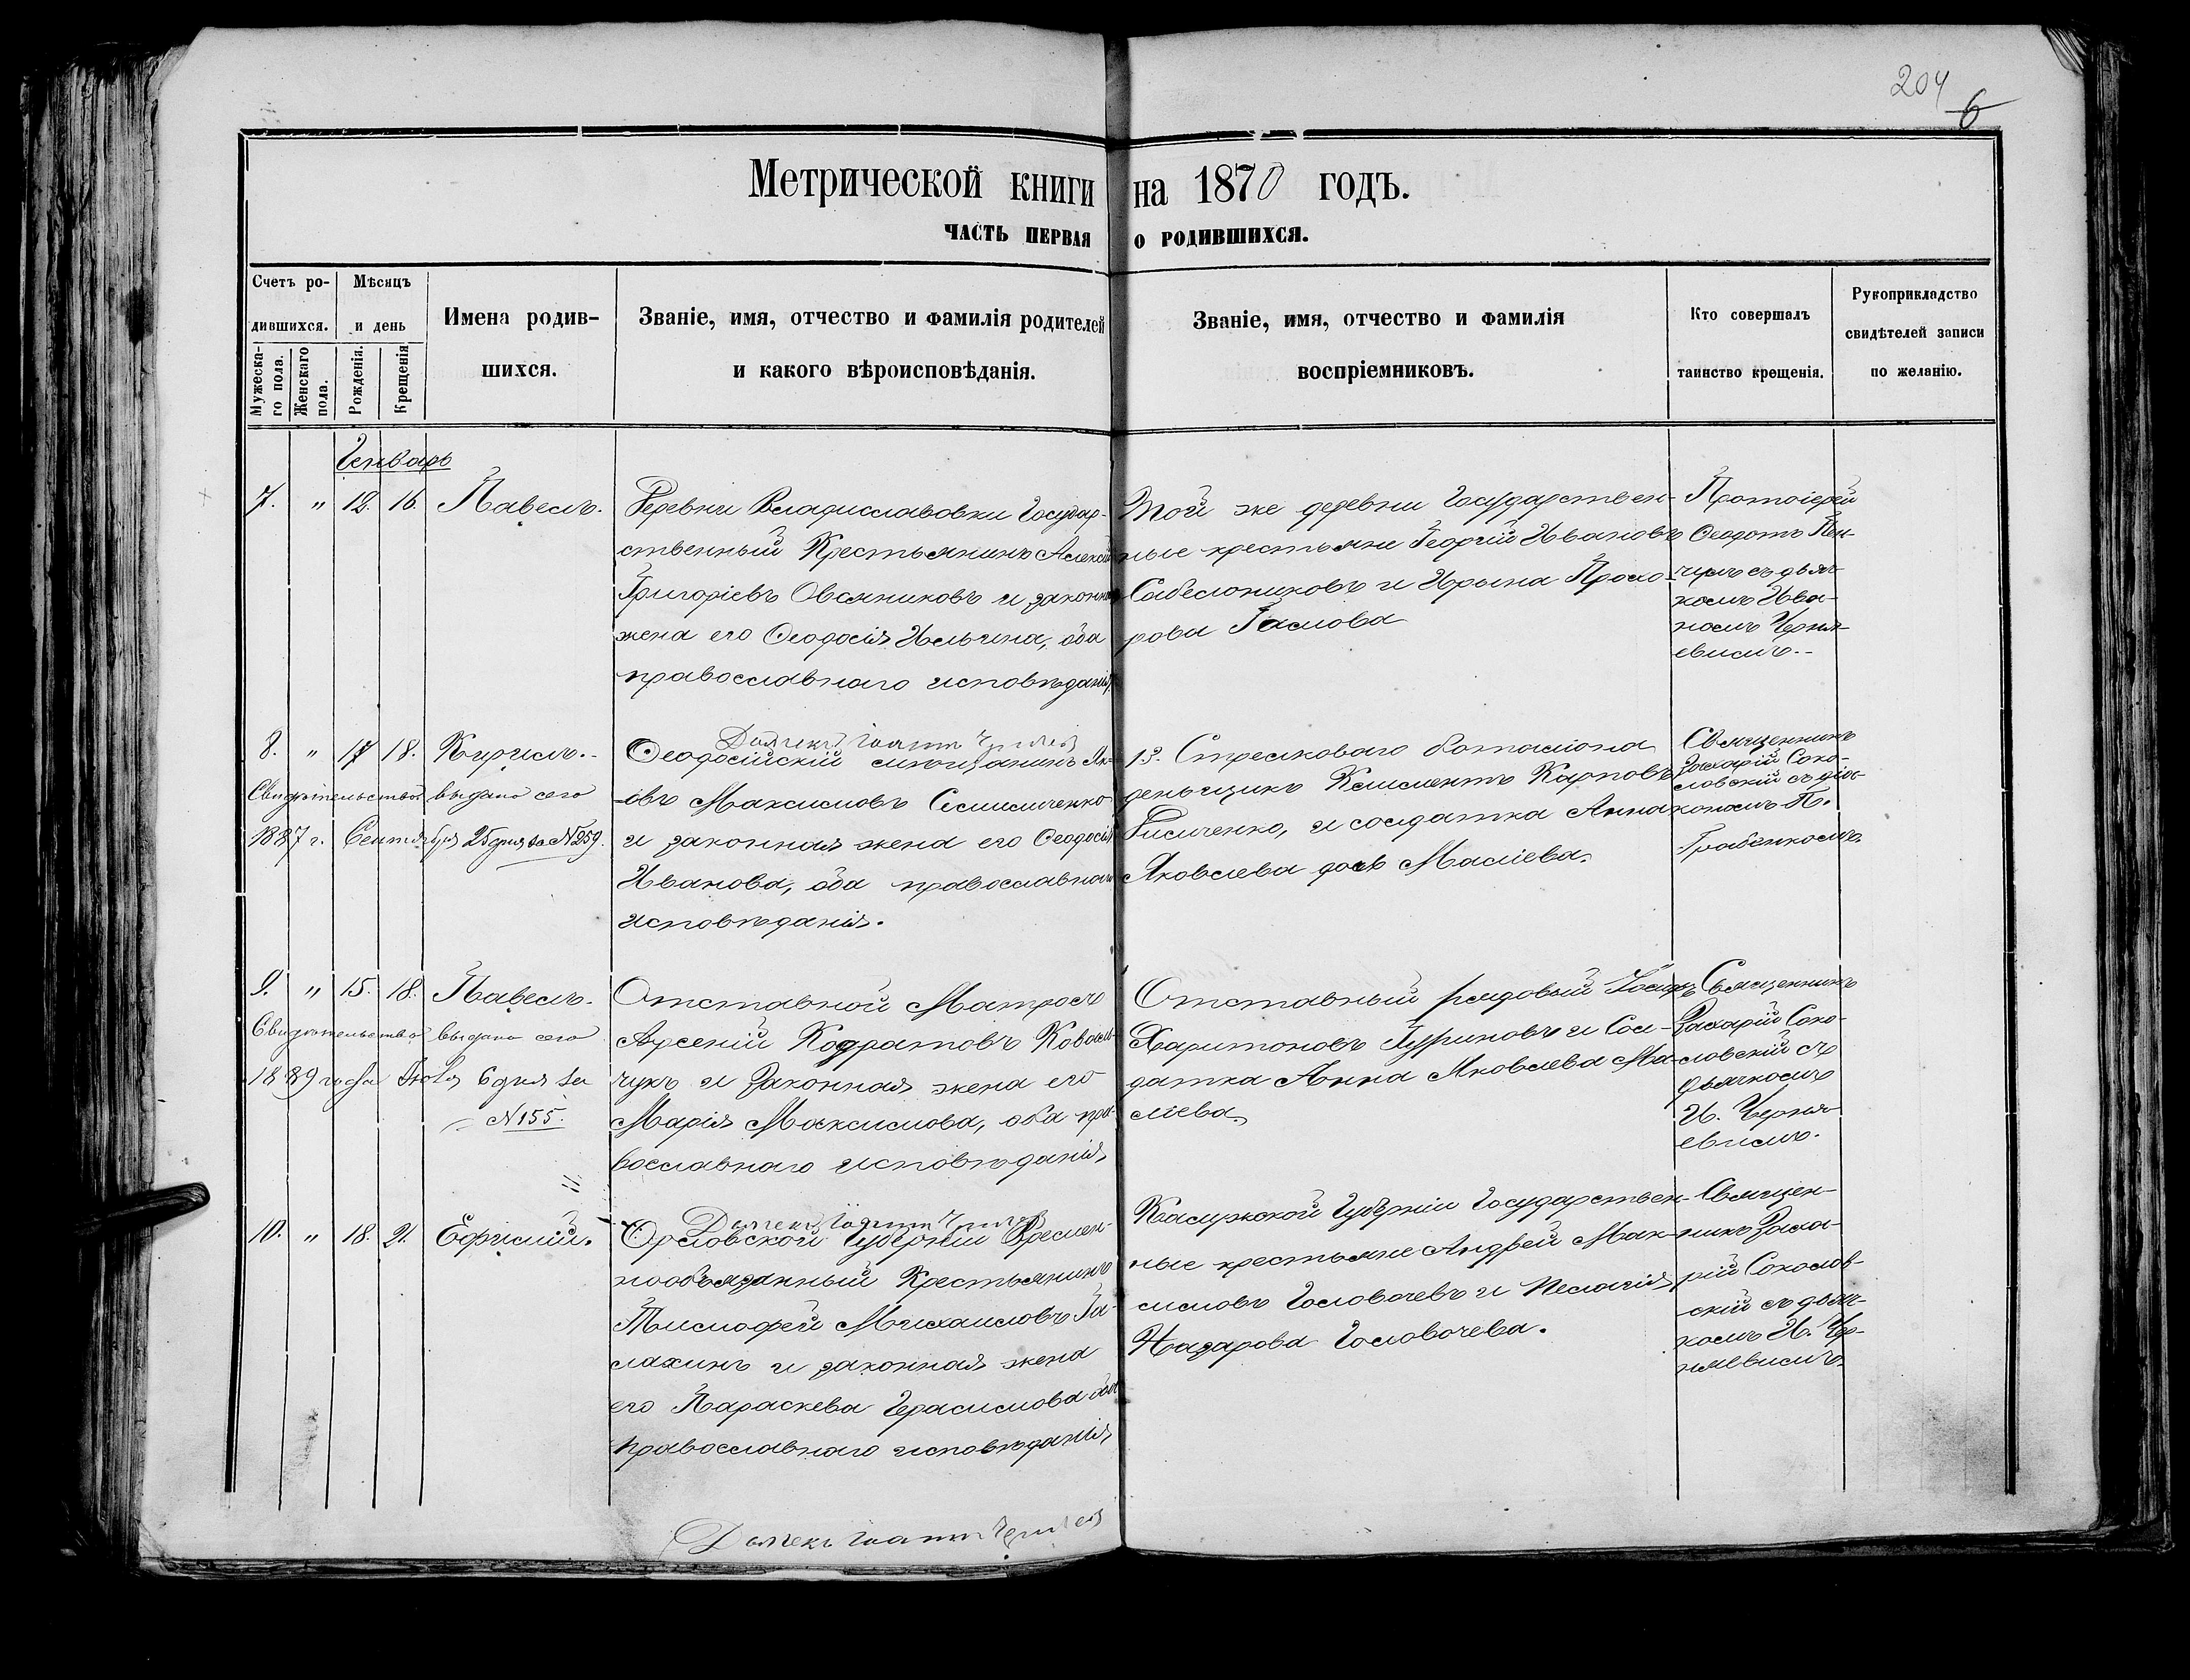 204
6
Метрической книги на 1870 годъ.
ЧАСТЬ ПЕРВАЯ О РОДИВШИХСЯ.
Счетъ ро-
дившихся.
Мужеска-
го пола.
Женскаго
пола.
Мѣсяцъ
и день
Рожденія.
Крещенія
Имена родив-
шихся.
Званіе, имя, отчество и фамилія родителей
и какого вѣроисповѣданія.
Званіе, имя, отчество и фамилія
воспріемниковъ.
Кто совершалъ
таинство крещенія.
Рукоприкладство
свидѣтелей записи
по желанію.
Генварь
7. " 12. 16. Павелъ.
Деревни Владиславовки Государ-
ственный Крестьянинъ Алексій
Григоріевъ Овсяниковъ и законная
жена его Ѳеодосія Ильина, оба
православнаго исповѣданія.
Той же деревни Государствен-
ные крестьяне Георгій Ивановъ
Сабельниковъ и Ирына Прохо-
рова
Протоіерей
Ѳеодотъ
съ дьяч-
комъ Ива-
номъ Черня-
евымъ.-
Дьячекъ Іоаннъ
8. " 17 18. Кирилъ.-
Свидѣтельство выдано сего
1887 г. Сентября 25 дня за №259.
Ѳеодосійскій мѣщанинъ Як-
овъ Максимовъ
и законная жена его Ѳеодосія
Иванова, оба православнаго
исповѣданія.
13. Стрелковаго баталіона
деньщикъ Климентъ Карповъ
и солдатка Анна
Яковлева дочь Маліева.
Священникъ
Захарій Соко-
ловскій съ діа-
кономъ П.
Грабенкомъ.
9. " 15. 18. Павелъ.
Свидѣтельство выдано сего
1889 года Іюля 6 дня за
№155.
Отставной Матросъ
Арсеній Кодратовъ Коваль-
чукъ и законная жена его
Марія Максимова, оба пра-
вославнаго исповѣданія,
Отставный рядовый Іосифъ
Харитоновъ и Сол-
датка Анна Яковлева Ма-
лиева,
Священникъ
Захарій Соко-
ловскій съ
дьячкомъ
И. Черня-
евымъ.
Дьячекъ Іоаннъ
10. " 18. 21. Ефимій.
Орловской Губерніи Времен-
нообязанный Крестьянинъ
Тимофей Михаиловъ Га-
лахинъ и законная жена
его Параскева Герасимова оба
православнаго исповѣданія,
Калужской Губерніи Государствен-
ные крестьяне Андрей Мак-
симовъ Головочевъ и Пелагія
Назарова Головочева.
Священ-
никъ Заха-
рій Соколов-
скій съ дьяч-
комъ И. Чер-
няевымъ.
Дьячекъ Іоаннъ